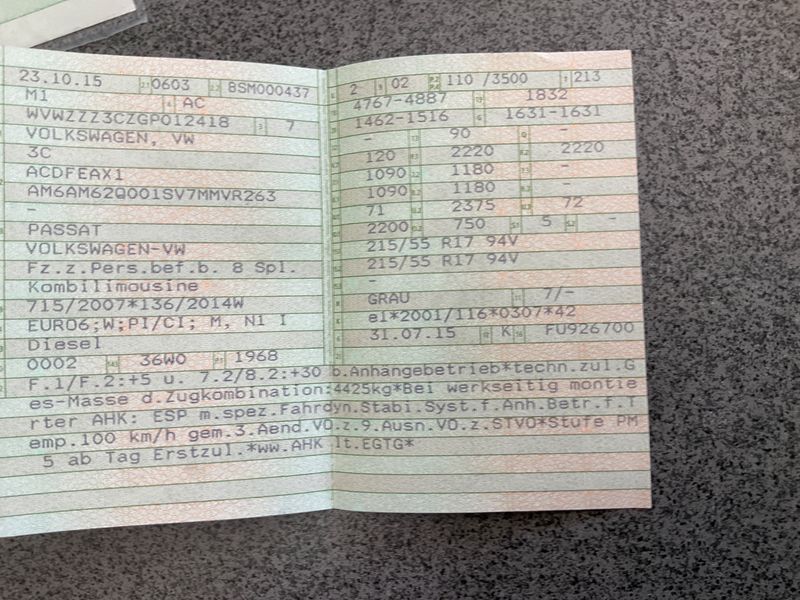 23.10.15 0603 BSM000437
M1 AC
WVWZZZ3CZGP012418 7
VOLKSWAGEN, VW
3C
ACDFEAX1
AM6AM62Q001SV7MMVR263
-
PASSAT
VOLKSWAGEN-VW
Fz.z.Pers.bef.b. 8 Spl.
Kombilimousine
715/2007*136/2014W
EURO6;W;PI/CI; M, N1 I
Diesel
0002 36W0 1968
2 02 110 /3500 213
4767-4887 1832
1462-1516 1631-1631
- 90 -
120 2220 2220
1090 1180 -
1090 1180 -
71 2375 72
2200 750 5 -
215/55 R17 94V
215/55 R17 94V
-
GRAU 7/-
e1*2001/116*0307*42
31.07.15 K FU926700
F.1/F.2:+5 u. 7.2/8.2:+30 b.Anhängebetrieb*techn.zul.G
es-Masse d.Zugkombination:4425kg*Bei werkseitig montie
rter AHK: ESP m.spez.Fahrdyn.Stabi.Syst.f.Anh.Betr.f.T
emp.100 km/h gem.3.Aend.VO.z.9.Ausn.VO.z.STVO*Stufe PM
5 ab Tag Erstzul.*ww.AHK lt.EGTG*